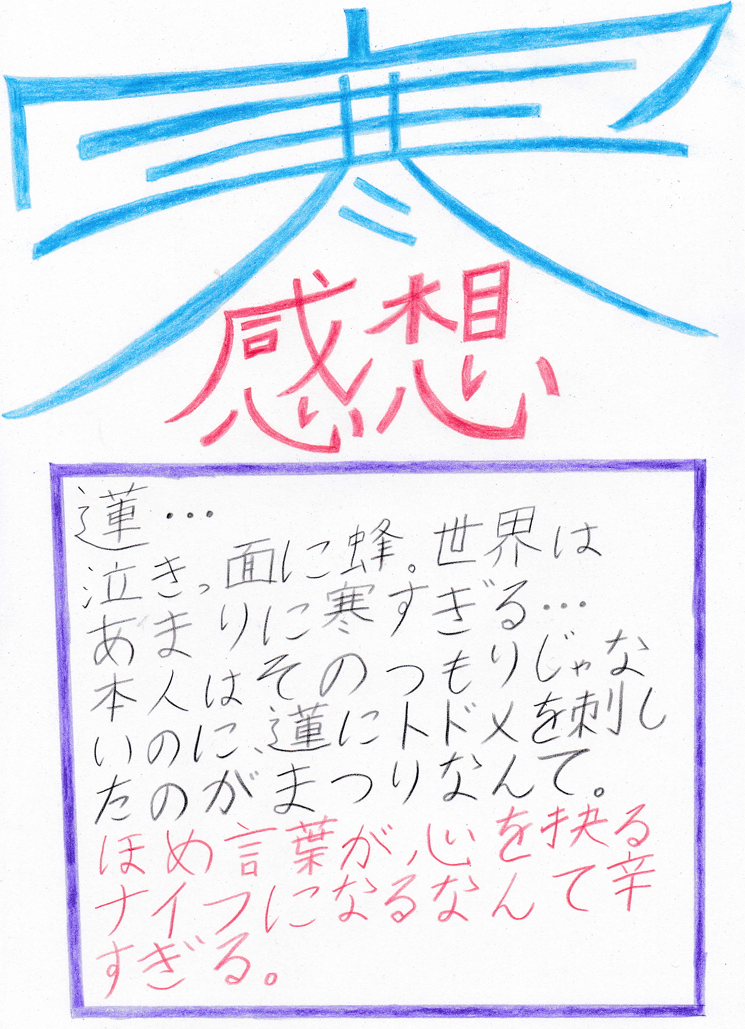 寒
感想
蓮…
泣きっ面に蜂。世界は
あまりに寒すぎる…
本人はそのつもりじゃな
いのに、蓮にトドメを刺し
たのがまつりなんて。
ほめ言葉が、心を抉る
ナイフになるなんて辛
すぎる。